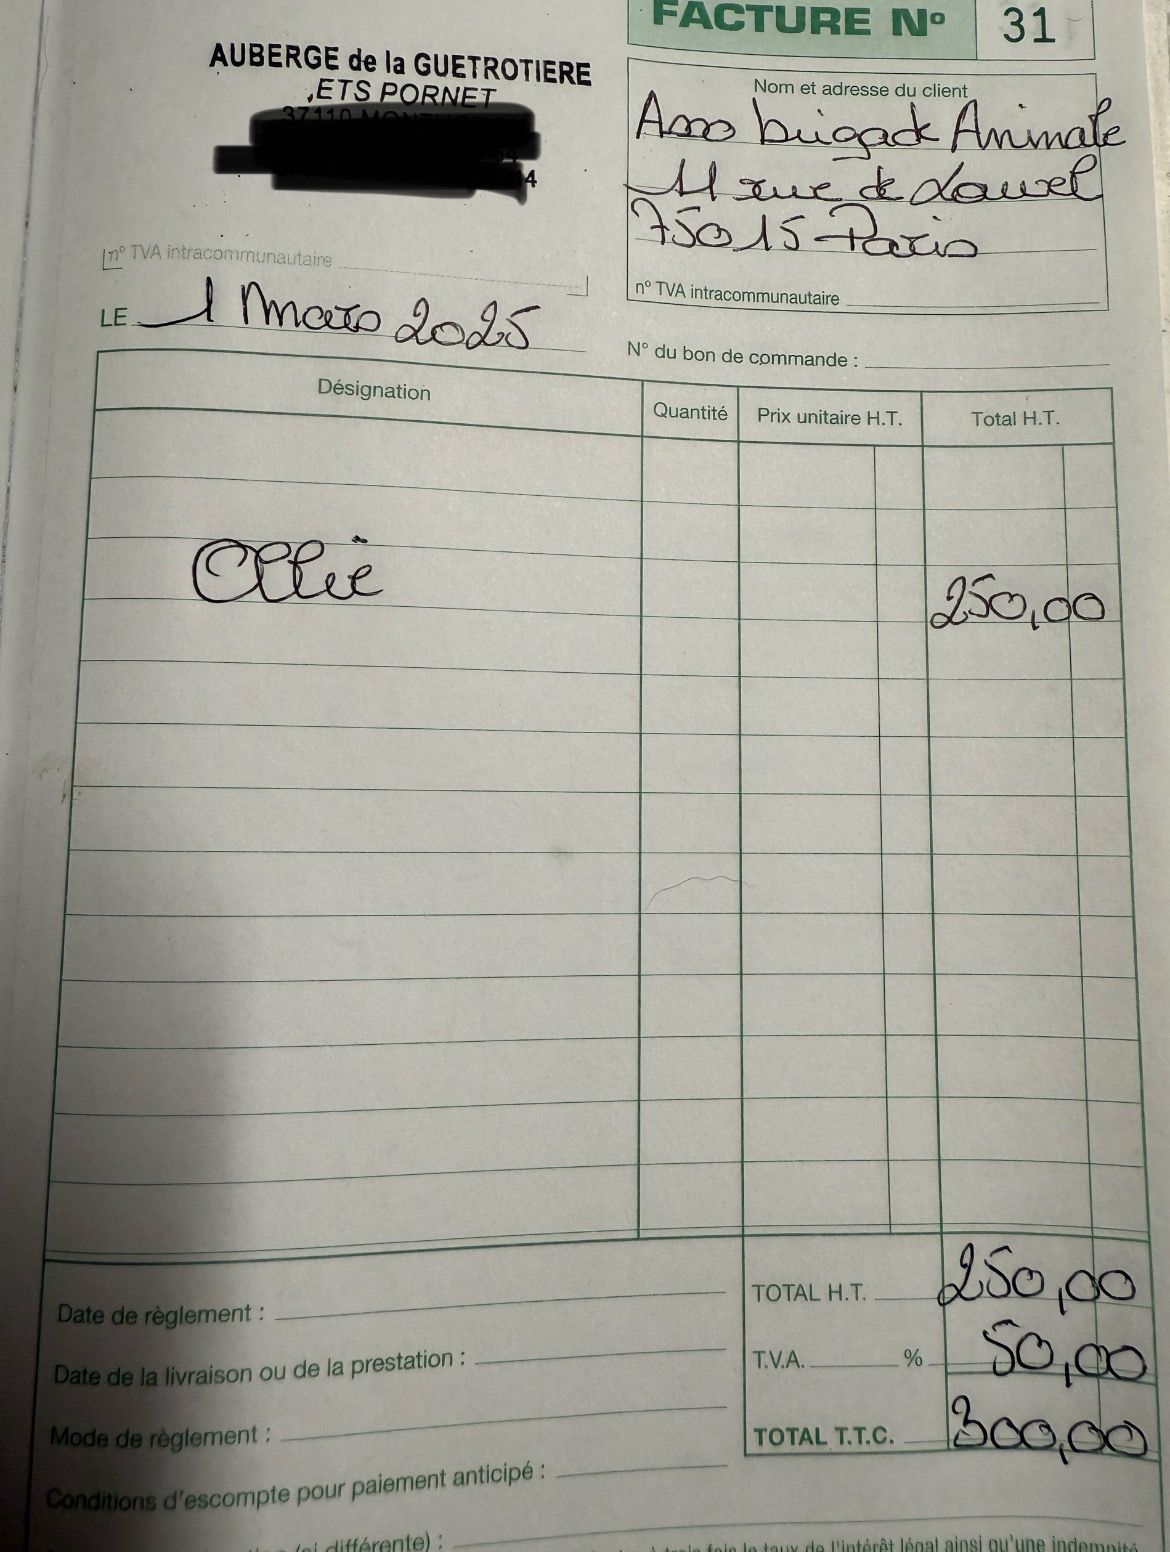 FACTURE N° 31
AUBERGE de la GUETROTIERE
ETS PORNET
37110
4
Nom et adresse du client
Asso brigade Animale
11 rue de
75015 Paris
n° TVA intracommunautaire
n° TVA intracommunautaire
LE 1 Mars 2025
N° du bon de commande :
Désignation Quantité Prix unitaire H.T. Total H.T.
Ollie 250,00
TOTAL H.T. 250,00
Date de règlement :
T.V.A. % 50,00
Date de la livraison ou de la prestation :
TOTAL T.T.C. 300,00
Mode de règlement :
Conditions d'escompte pour paiement anticipé :
(si différente) :
trois fois le taux de l'intérêt légal ainsi qu'une indemnité